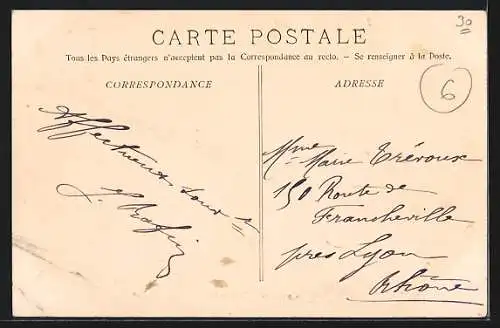 30
CARTE POSTALE
Tous les Pays étrangers n'acceptent pas la Correspondance au recto. — Se renseigner à la Poste.
CORRESPONDANCE
ADRESSE
6
Mme Marie Trévoux
150 Route de
Francheville
près Lyon
Rhône